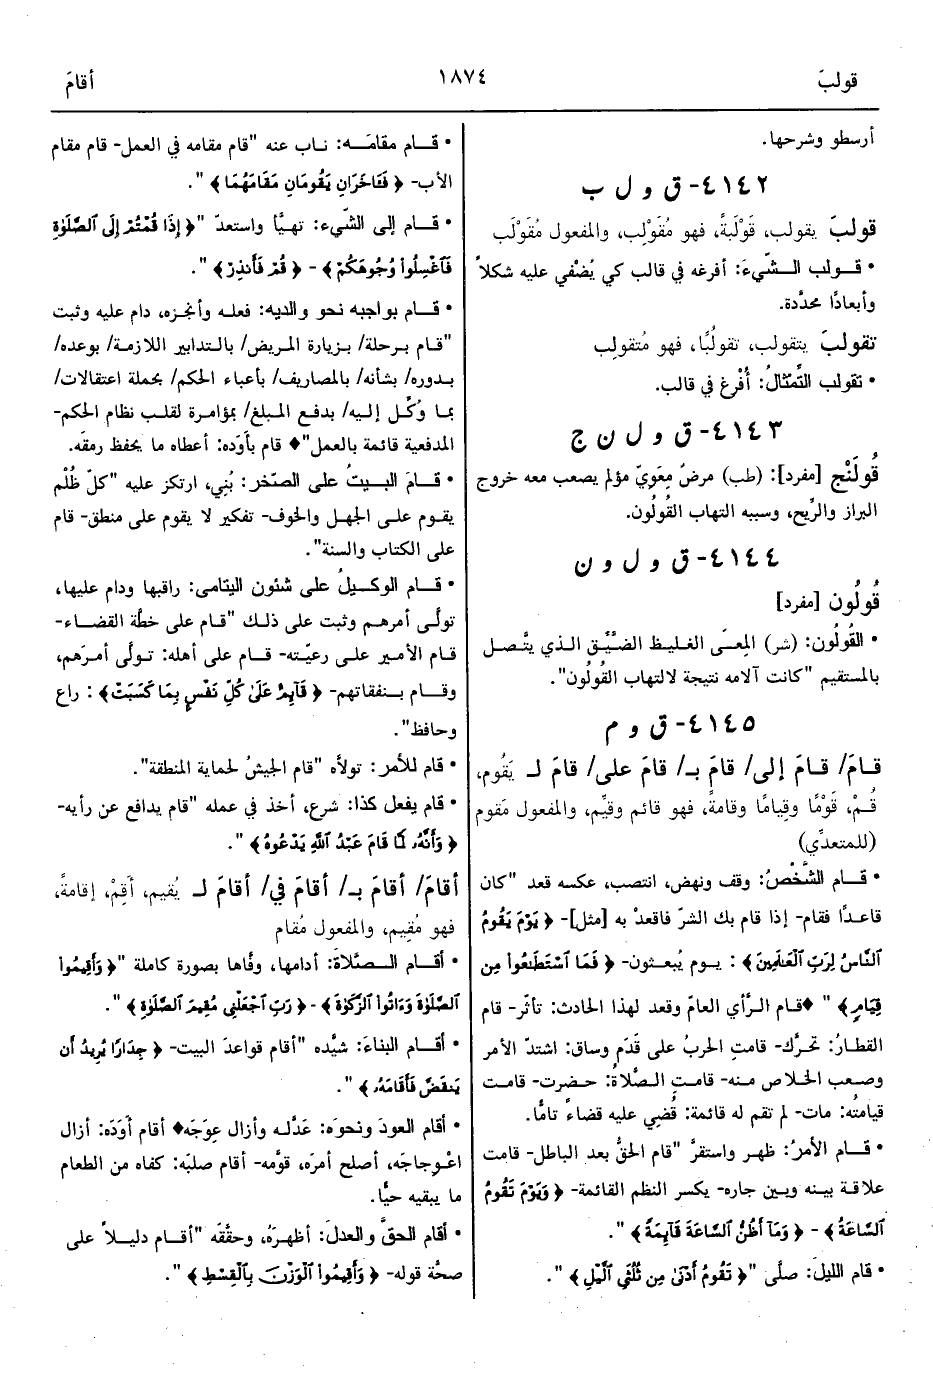 قولبَ
١٨٧٤
أقامَ
أرسطو وشرحها.
٤١٤٢- ق و ل ب
قولبَ يقولب، قَوْلَبةً، فهو مُقَوْلِب، والمفعول مُقَوْلَب
• قـولب الـشَّيءَ: أفرغه في قالب كي يُضْفي عليه شكلاً
وأبعادًا محدَّدة.
تقولبَ يتقولب، تقولُبًا، فهو مُتقولِب
• تقولب التِّمْثالُ: أُفْرغ في قالب.
٤١٤٣- ق و ل ن ج
قُولَنْج [مفرد]: (طب) مرضٌ مِعَويّ مؤلم يصعب معه خروج
البراز والرِّيح، وسببه التهاب القُولُون.
٤١٤٤- ق و ل و ن
قُولُون [مفرد]
• القُولُون: (شر) المِعَى الغليظ الضَّيِّق الذي يتَّصل
بالمستقيم "كانت آلامه نتيجة لالتهاب القُولُون".
٤١٤٥- ق و م
قـامَ/ قـامَ إلى/ قامَ بـ/ قامَ على/ قامَ لـ يَقُوم،
قُـمْ، قَوْمًا وقِيامًا وقامةً، فهو قائم وقيِّم، والمفعول مَقوم
(للمتعدِّي)
• قـام الشَّخْصُ: وقف ونهض، انتصب، عكسه قعد "كان
قاعدًا فقام- إذا قام بك الشرّ فاقعدْ به [مثل]- ﴿ يَوْمَ يَقُومُ
ٱلنَّاسُ لِرَبِّ ٱلْعَالَمِينَ﴾ : يـوم يُبعـثون- ﴿ فَمَا ٱسْتَطَاعُوا مِن
قِيَامٍ﴾ " ♦قـام الـرَّأي العامّ وقعد لهذا الحادث: تأثّر- قام
القطارُ: تحرَّك- قامتِ الحربُ على قَدَم وساق: اشتدّ الأمر
وصعب الخلاص منه- قامتِ الـصَّلاةُ: حضرت- قامت
قيامتُه: مات- لم تقم له قائمة: قُضِي عليه قضاءً تامًّا.
• قـام الأمرُ: ظهر واستقرَّ "قام الحقُّ بعد الباطل- قامت
علاقة بينه وبين جاره- يكسر النظم القائمة- ﴿ وَيَوْمَ تَقُومُ
ٱلسَّاعَةُ﴾ - ﴿ وَمَآ أَظُنُّ ٱلسَّاعَةَ قَآئِمَةً﴾ ".
• قام الليلَ: صلَّى "﴿ تَقُومُ أَدْنَىٰ مِن ثُلُثَيِ ٱلَّيْلِ﴾ ".
• قـام مقامَـه: نـاب عنه "قام مقامه في العمل- قام مقام
الأب- ﴿ فَـَٔاخَرَانِ يَقُومَانِ مَقَامَهُمَا﴾ ".
• قـام إلى الشَّيء: تهيَّأ واستعدّ "﴿ إِذَا قُمْتُمْ إِلَى ٱلصَّلَوٰةِ
فَٱغْسِلُوا۟ وُجُوهَكُمْ﴾ - ﴿ قُمْ فَأَنذِرْ﴾ ".
• قـام بواجبه نحو والديه: فعلـه وأنجزه، دام عليه وثبت
"قـام بـرحلة/ بـزيارة المـريض/ بالـتدابير اللازمـة/ بوعده/
بـدوره/ بشأنه/ بالمصاريف/ بأعباء الحكم/ بحملة اعتقالات/
بمـا وُكِّـل إليـه/ بدفـع المـبلغ/ بمؤامرة لقلب نظام الحكم-
المدفعية قائمة بالعمل"♦ قام بأَوَده: أعطاه ما يحفظ رمقَه.
• قـامَ البيـتُ على الصّخر: بُنِي، ارتكز عليه "كلّ ظُلْم
يقوم على الجهل والخوف- تفكير لا يقوم على منطق- قام
على الكتاب والسنة".
• قـام الوكيلُ على شئون اليتامى: راقبها ودام عليها،
تولَّى أمرهم وثبت على ذلـك "قـام على خطَّة القضاء-
قام الأمير على رعيّته- قـام على أهله: تـولَّى أمرَهم،
وقـام بـنفقاتهم- ﴿ قَآئِمٌ عَلَىٰ كُلِّ نَفْسٍۭ بِمَا كَسَبَتْ﴾ : راع
وحافظ".
• قام للأمر: تولاّه "قام الجيشُ لحماية المنطقة".
• قام يفعل كذا: شرع، أخذ في عمله "قام يدافع عن رأيه-
﴿ وَأَنَّهُۥ لَمَّا قَامَ عَبْدُ ٱللَّهِ يَدْعُوهُ﴾ ".
أقامَ/ أقامَ بـ/ أقامَ في/ أقامَ لـ يُقيم، أَقِمْ، إقامةً،
فهو مُقِيم، والمفعول مُقام
• أقـام الـصَّلاةَ: أدامها، وفَّاها بصورة كاملة "﴿ وَأَقِيمُوا۟
ٱلصَّلَوٰةَ وَءَاتُوا۟ ٱلزَّكَوٰةَ﴾ -﴿ رَبِّ ٱجْعَلْنِى مُقِيمَ ٱلصَّلَوٰةِ﴾ ".
• أقـام البناءَ: شيَّده "أقام قواعدَ البيت- ﴿ جِدَارًا يُرِيدُ أَن
يَنقَضَّ فَأَقَامَهُۥ﴾ ".
• أقام العودَ ونحوَه: عَدَّلـه وأزال عِوَجَه♦ أقام أَوَدَه: أزال
اعْـوجاجَه، أصلح أمرَه، قوَّمه- أقام صلبَه: كفاه من الطعام
ما يبقيه حيًّا.
• أقام الحقَّ والعدلَ: أظهرَهُ، وحقَّقَه "أقـام دليـلاً على
صحَّة قوله- ﴿ وَأَقِيمُوا۟ ٱلْوَزْنَ بِٱلْقِسْطِ﴾ ".